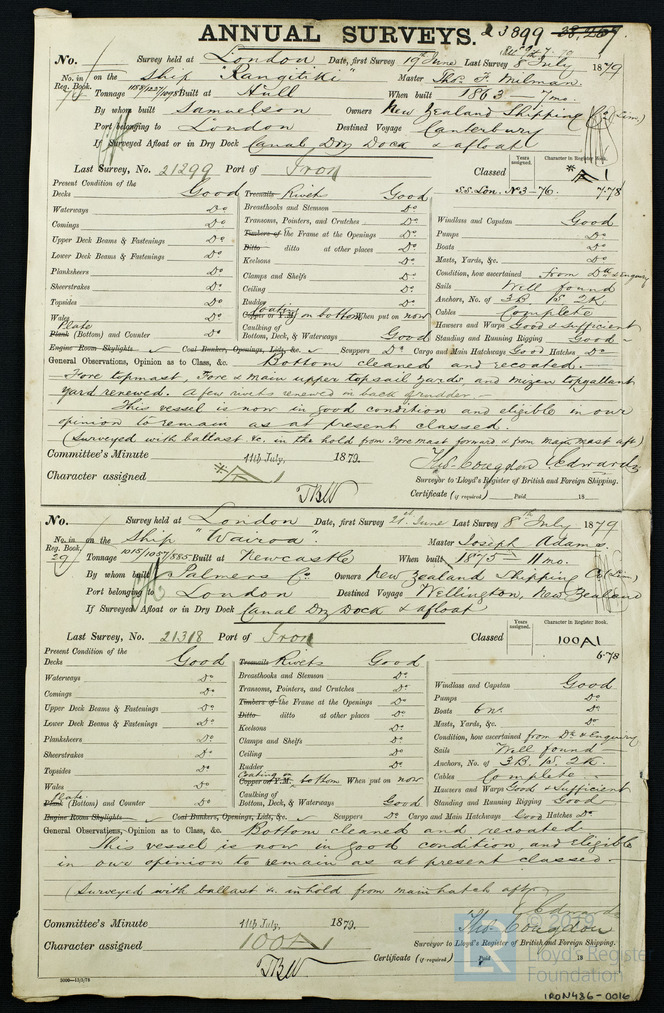 ANNUAL SURVEYS. 23899
No. Survey held at London Date, first Survey 19th June Last Survey 8th July 1879
No. in Reg. Book. on the Ship "Rangitiki" Master Thos. F. Milman.
75 Tonnage 1188/1227/1098 Built at Hull When built 1863 - 7 mo.
By whom built Samuelson Owners New Zealand Shipping Co (Lim)
Port belonging to London Destined Voyage Canterbury
If Surveyed Afloat or in Dry Dock Canal Dry Dock & afloat
Last Survey, No. 21299 Port of Iron Classed Years assigned. Character in Register Book. *A1
S.S. Lon. N3-76. 7-78
Present Condition of the
Decks Good
Waterways Do
Comings Do
Upper Deck Beams & Fastenings Do
Lower Deck Beams & Fastenings Do
Planksheers Do
Sheerstrakes Do
Topsides Do
Wales Do
Plate
Plank (Bottom) and Counter Do
Engine Room Skylights
Treenails Rivets Good
Breasthooks and Stemson Do
Transoms, Pointers, and Crutches Do
Timbers of the Frame at the Openings Do
Ditto ditto at other places Do
Keelsons Do
Clamps and Shelfs Do
Ceiling Do
Rudder Do
Coating
Copper or Y.M. on bottom When put on now
Caulking of
Bottom, Deck, & Waterways Good
Coal Bunker, Openings, Lids, &c. Scuppers Do
Windlass and Capstan Good
Pumps Do
Boats Do
Masts, Yards, &c. Do
Condition, how ascertained from Dk & Enquiry
Sails Well found
Anchors, No. of 3B. 1S. 2K
Cables Complete
Hawsers and Warps Good & Sufficient
Standing and Running Rigging Good
Cargo and Main Hatchways Good Hatches Do
General Observations, Opinion as to Class, &c. Bottom cleaned and recoated.
Fore topmast, Fore & main upper topsail yards, and mizen topgallant
yard renewed. A few rivets renewed in back of rudder.
This vessel is now in good condition and eligible in our
opinion to remain as at present classed.
(Surveyed with ballast &c. in the hold from Fore mast forward & from main mast aft)
Committee's Minute 11th July, 1879. Thos. Congdon Edwards
Character assigned *A1 Surveyor to Lloyd's Register of British and Foreign Shipping.
TBW Certificate (if required) Paid 18
No. Survey held at London Date, first Survey 21st June Last Survey 8th July 1879
No. in Reg. Book. on the Ship "Wairoa" Master Joseph Adams.
29 Tonnage 1015/1057/885 Built at Newcastle When built 1875 - 11 mo.
By whom built Palmers Co Owners New Zealand Shipping Co (Lim)
Port belonging to London Destined Voyage Wellington, New Zealand
If Surveyed Afloat or in Dry Dock Canal Dry Dock & afloat
Last Survey, No. 21318 Port of Iron Classed Years assigned. Character in Register Book. 100A1
6-78
Present Condition of the
Decks Good
Waterways Do
Comings Do
Upper Deck Beams & Fastenings Do
Lower Deck Beams & Fastenings Do
Planksheers Do
Sheerstrakes Do
Topsides Do
Wales Do
Plate
Plank (Bottom) and Counter Do
Engine Room Skylights
Treenails Rivets Good
Breasthooks and Stemson Do
Transoms, Pointers, and Crutches Do
Timbers of the Frame at the Openings Do
Ditto ditto at other places Do
Keelsons Do
Clamps and Shelfs Do
Ceiling Do
Rudder Do
Coating on
Copper or Y.M. bottom When put on now
Caulking of
Bottom, Deck, & Waterways Good
Coal Bunkers, Openings, Lids, &c. Scuppers Do
Windlass and Capstan Good
Pumps Do
Boats 6 no. Do
Masts, Yards, &c. Do
Condition, how ascertained from Dk & Enquiry
Sails Well found
Anchors, No. of 3B. 1S. 2K.
Cables Complete
Hawsers and Warps Good & Sufficient
Standing and Running Rigging Good
Cargo and Main Hatchways Good Hatches Do
General Observations, Opinion as to Class, &c. Bottom cleaned and recoated
This vessel is now in good condition, and eligible
in our opinion to remain as at present classed
(Surveyed with ballast &c. in hold from main hatch aft)
Edwards
Committee's Minute 11th July, 1879. Thos. Congdon
Character assigned 100A1 Surveyor to Lloyd's Register of British and Foreign Shipping.
TBW Certificate (if required) Paid 18
© 2019
Lloyd's Register
Foundation
IRON436-0016